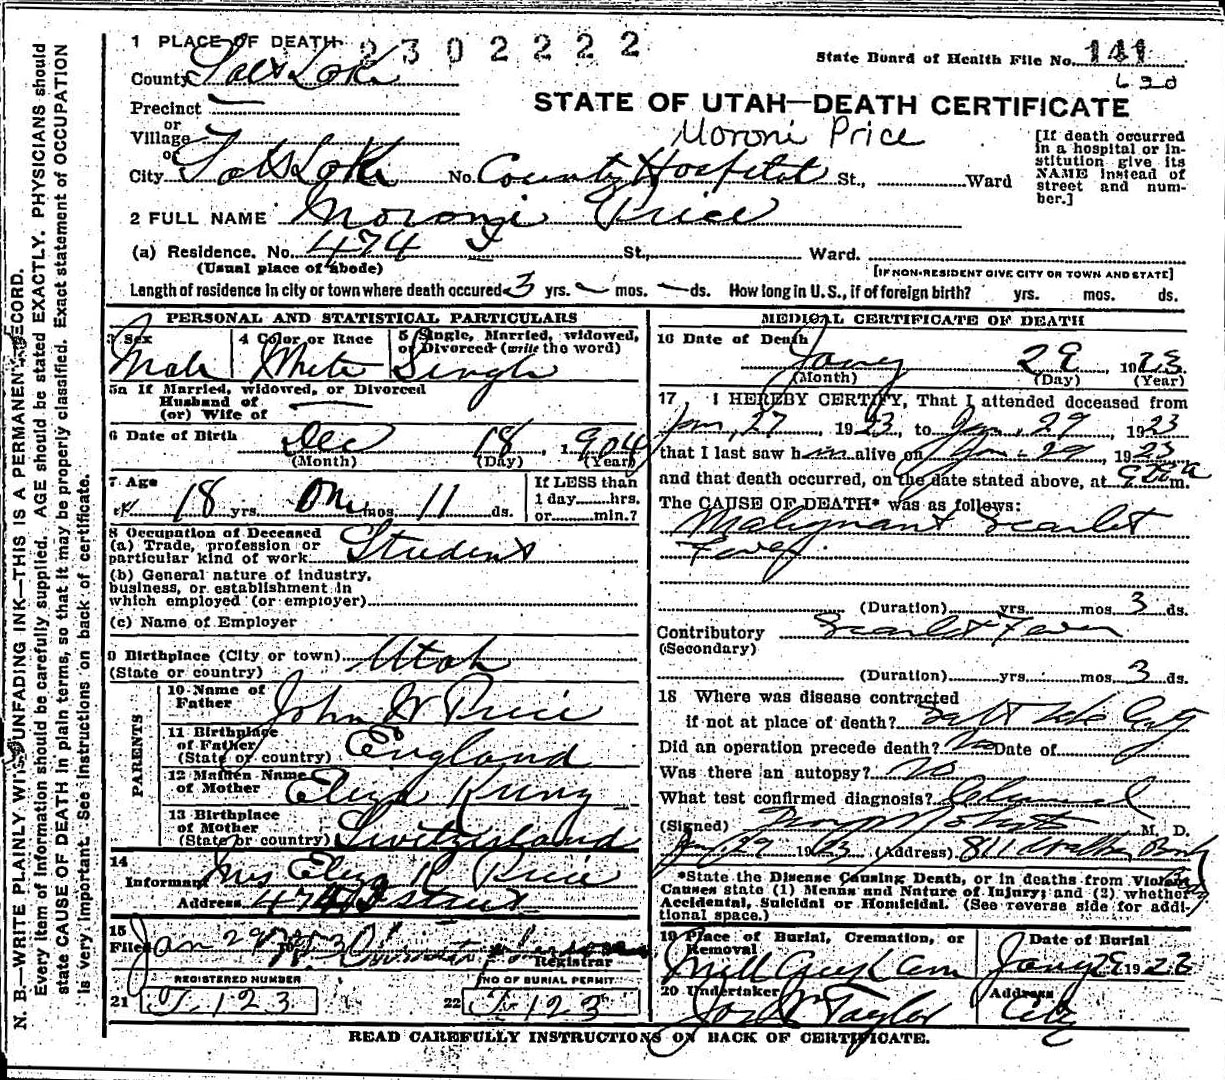 1 PLACE OF DEATH 2302222
State Board of Health File No. 141
County Salt Lake
620
Precinct —
STATE OF UTAH—DEATH CERTIFICATE
or
Village
Moroni Price
or
City Salt Lake No. County Hospital St., Ward
[If death occurred
in a hospital or in-
stitution give its
NAME instead of
street and num-
ber.]
2 FULL NAME Moroni Price
(a) Residence. No. 474 I St., Ward.
(Usual place of abode)
[IF NON-RESIDENT GIVE CITY OR TOWN AND STATE]
Length of residence in city or town where death occured 3 yrs. — mos. — ds. How long in U.S., if of foreign birth? yrs. mos. ds.
PERSONAL AND STATISTICAL PARTICULARS
3 Sex
Male
4 Color or Race
White
5 Single, Married, widowed,
or Divorced (write the word)
Single
5a If Married, widowed, or Divorced
Husband of
(or) Wife of
6 Date of Birth Dec 18, 1904
(Month) (Day) (Year)
7 Age
18 yrs. One mos. 11 ds.
If LESS than
1 day......hrs.
or......min.?
8 Occupation of Deceased
(a) Trade, profession or
particular kind of work Student
(b) General nature of industry,
business, or establishment in
which employed (or employer)
(c) Name of Employer
9 Birthplace (City or town) Utah
(State or country)
PARENTS
10 Name of
Father John W Price
11 Birthplace
of Father
(State or country) England
12 Maiden Name
of Mother Eliza Kunz
13 Birthplace
of Mother
(State or country) Switzerland
14
Informant Mrs Eliza K Price
Address 474 I street
15
Filed Jan 29
Registrar
REGISTERED NUMBER
21 J-123
NO OF BURIAL PERMIT
22 J-123
MEDICAL CERTIFICATE OF DEATH
16 Date of Death
Jany 29, 1923
(Month) (Day) (Year)
17 I HEREBY CERTIFY, That I attended deceased from
Jan, 27, 1923, to Jan. 29, 1923
that I last saw him alive on Jan - 29, 1923
and that death occurred, on the date stated above, at m.
The CAUSE OF DEATH* was as follows:
Malignant Scarlet
Fever.
(Duration) yrs. mos. 3 ds.
Contributory Scarlet Fever
(Secondary)
(Duration) yrs. mos. 3 ds.
18 Where was disease contracted
if not at place of death? Salt Lake City
Did an operation precede death? No Date of
Was there an autopsy? No
What test confirmed diagnosis? Clinical
(Signed) M. D.
Jan. 29 1923 (Address) 811 Walker Bank
Bldg
*State the Disease Causing Death, or in deaths from Violent
Causes state (1) Means and Nature of Injury; and (2) whether
Accidental, Suicidal or Homicidal. (See reverse side for addi-
tional space.)
19 Place of Burial, Cremation, or
Removal
Mill Creek Cem
Date of Burial
Jany 29 1923
20 Undertaker
Jos Wm Taylor
Address
City
READ CAREFULLY INSTRUCTIONS ON BACK OF CERTIFICATE.
N. B.—WRITE PLAINLY WITH UNFADING INK—THIS IS A PERMANENT RECORD.
Every item of information should be carefully supplied. AGE should be stated EXACTLY. PHYSICIANS should
state CAUSE OF DEATH in plain terms, so that it may be properly classified. Exact statement of OCCUPATION
is very important. See instructions on back of certificate.